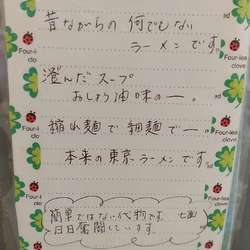 昔ながらの 何でもない
ラーメン です。
澄んだ スープ
おしょう油味の ー。
縮れ麺で 細麺で ー
本来の東京ラーメンです。
簡単ではない代物です。
日日奮闘しています。
Four-lea
clove
Four-lea
clove
Four-lea
clove